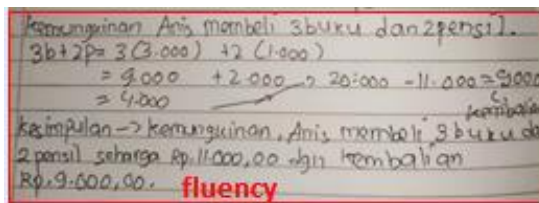 kemunguinan Anis membeli 3 buku dan 2 pensil.
3b+2p = 3 (3.000) +2 (1.000)
= 9.000 +2.000 → 20.000 - 11.000 = 9000
= 4.000 kembalian
kesimpulan → kemunguinan, Anis membeli 3 buku da
2 pensil seharga Rp.11.000,00 dgn kembalian
Rp.9.000,00. fluency